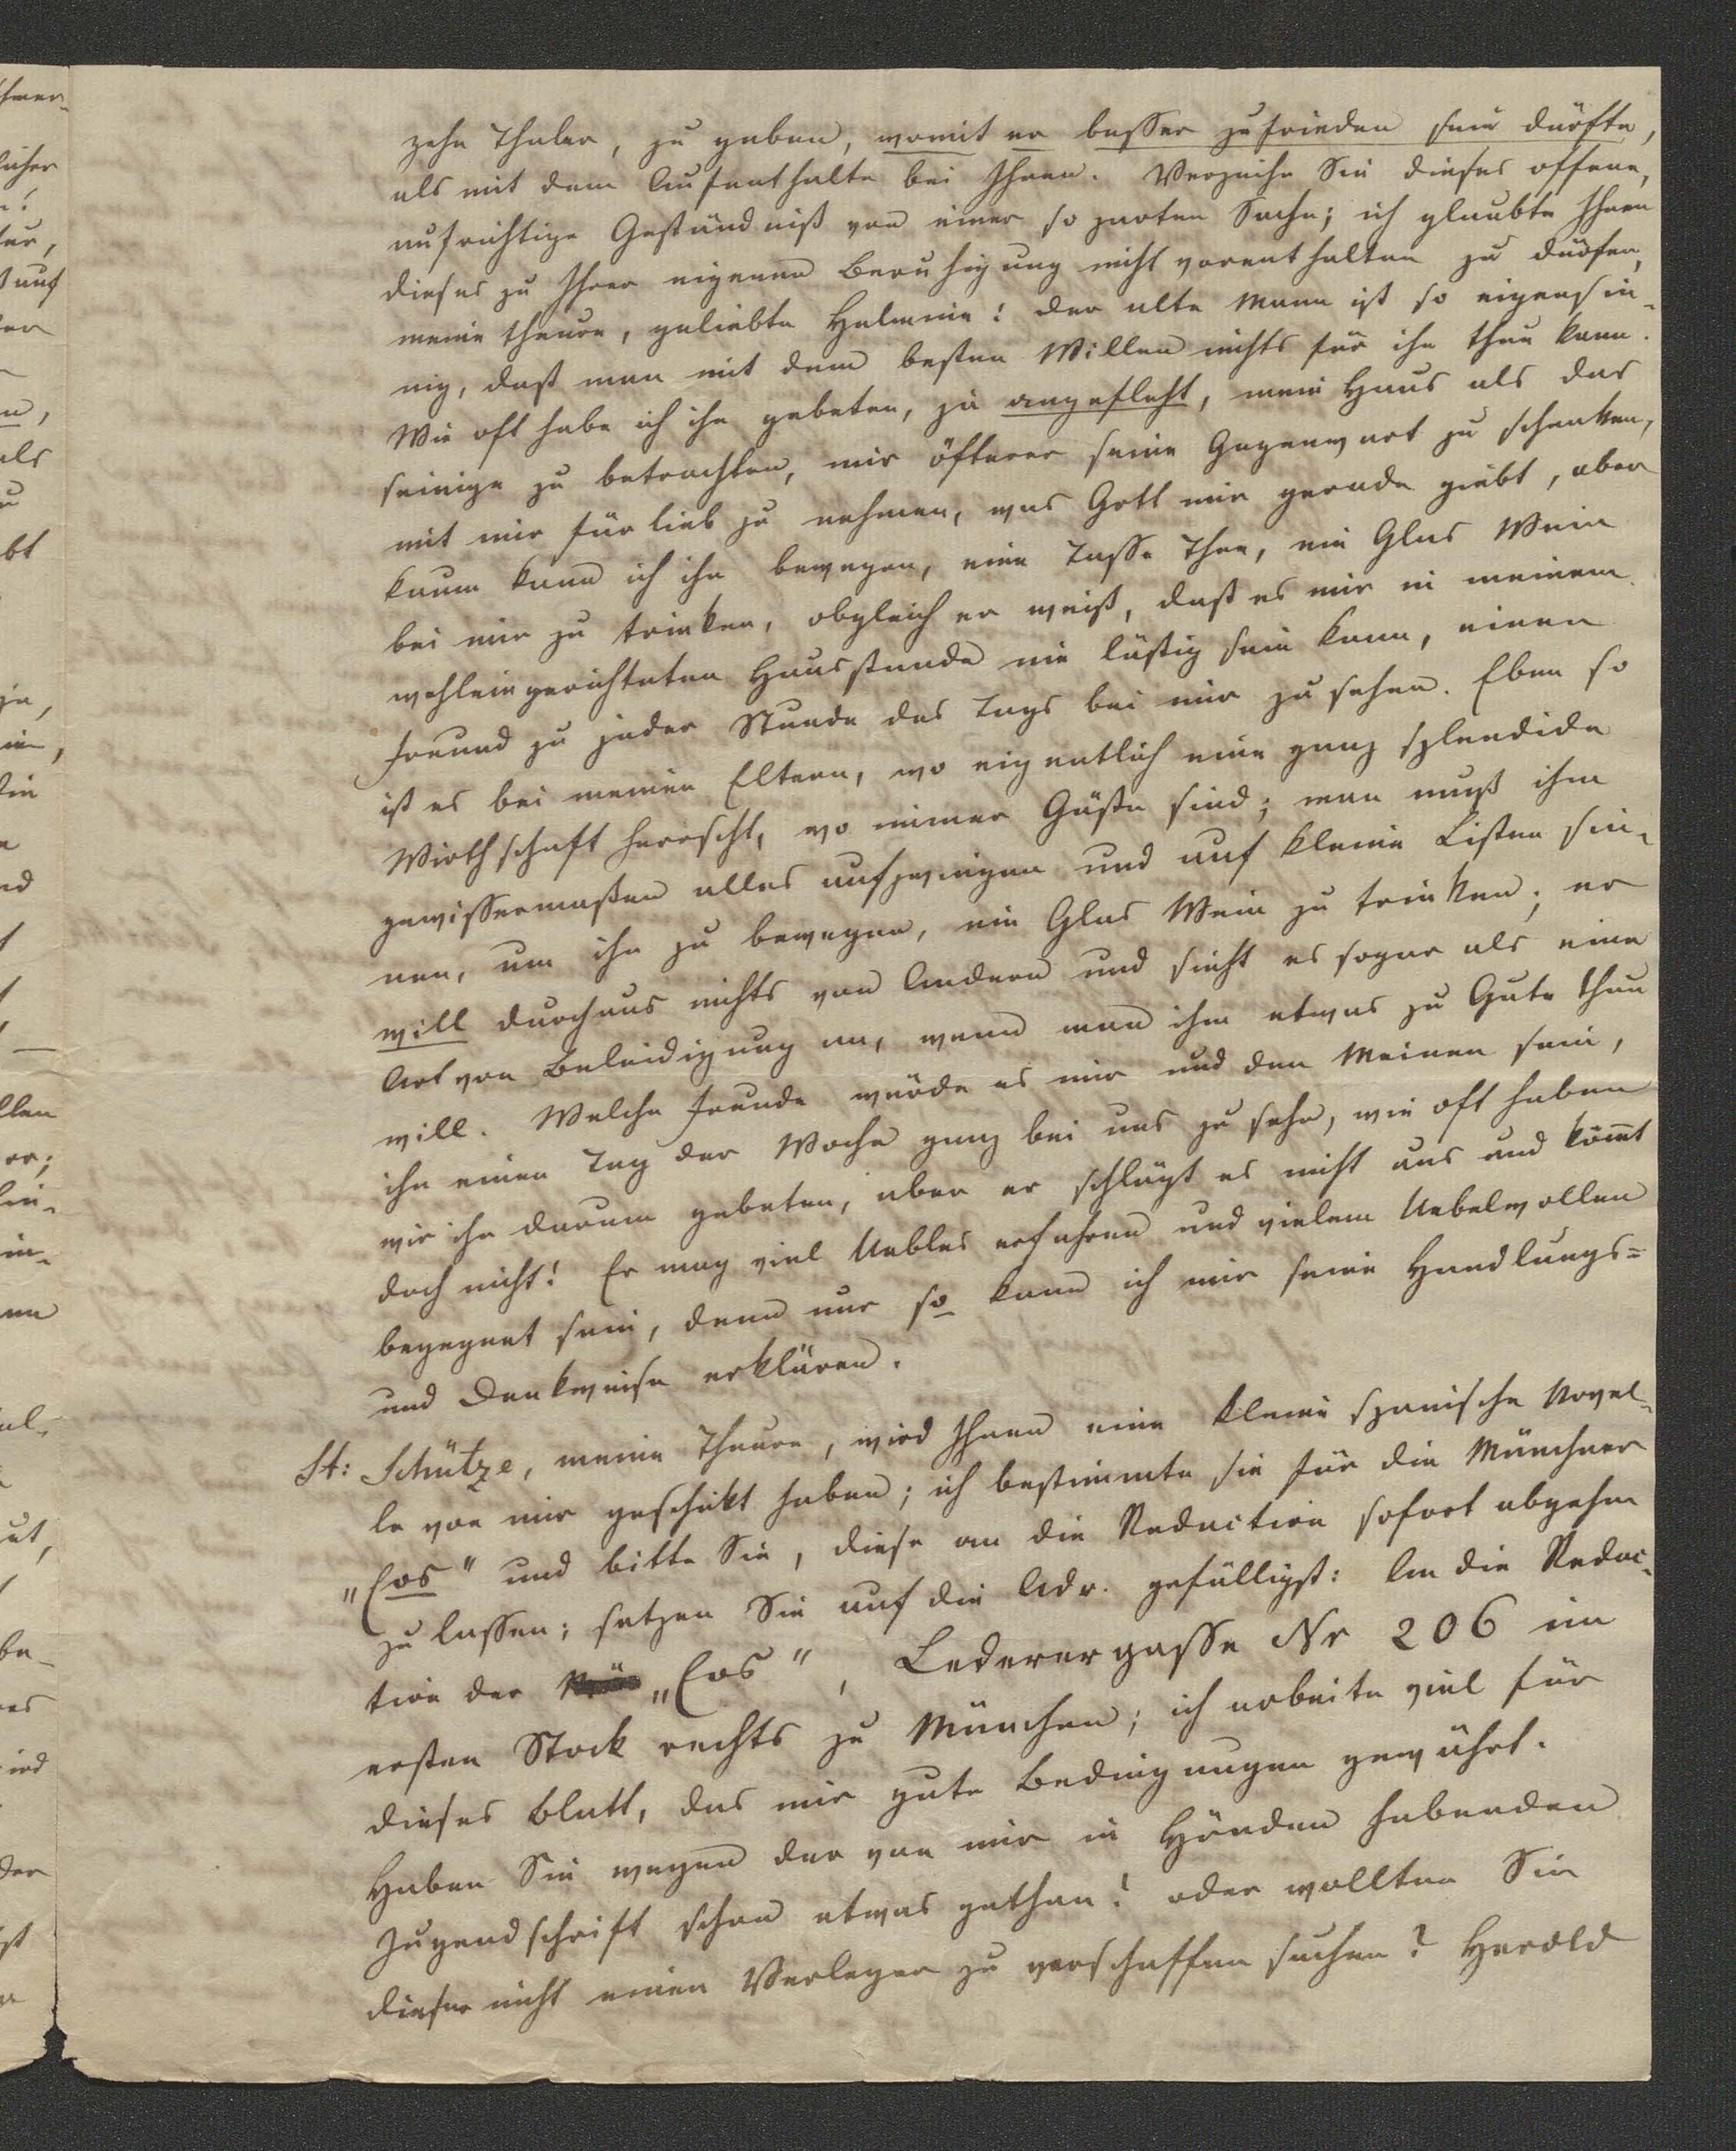 zehn Thaler, zu geben, womit er besser zufrieden sein dürfte,
als mit dem Aufenthalte bei Ihnen. Verzeihn Sie dieses offene,
aufrichtige Geständniß von einer so zarten Sache; ich glaubte Ihnen
dieses zu Ihrer eigenen Beruhigung nicht vorenthalten zu dürfen,
meine theure, geliebte Helmine! der alte Mann ist so eigensin-
nig, daß man mit dem besten Willen nichts für ihn thun kann.
Wie oft habe ich ihn gebeten, ja angefleht, mein Haus als das
seinige zu betrachten, mir öfterer seine Gegenwart zu schenken,
mit mir fürlieb zu nehmen, was Gott mir gerade giebt, aber
kaum kann ich ihn bewegen, eine Tasse Thee, ein Glas Wein
bei mir zu trinken, obgleich er weiß, daß es mir in meinem
wohleingerichteten Hausstande nie lästig sein kann, einen
Freund zu jeder Stunde des Tags bei mir zu sehen. Eben so
ist es bei meinen Eltern, wo eigentlich eine ganz splendide
Wirthschaft herrscht, wo immer Gäste sind; man muß ihm
gewissermaßen alles aufzwingen und auf kleine Listen sin-
nen, um ihn zu bewegen, ein Glas Wein zu trinken; er
will durchaus nichts von Andern und sieht es sogar als eine
Art von Beleidigung an, wenn man ihm etwas zu Gute thun
will. Welche Freude würde es mir und den Meinen sein,
ihn einen Tag der Woche ganz bei uns zu sehn, wie oft haben
wir ihn darum gebeten, aber er schlägt es nicht aus und kömt
doch nicht! Er mag viel Uebles erfahren und vielem Uebelwollen
begegnet sein, denn nur so kann ich mir seine Handlungs=
und Denkweise erklären.
St: Schütze, meine Theure, wird Ihnen eine kleine spanische Novel-
le von mir geschikt haben; ich bestimmte sie für die Münchner
„Eos" und bitte Sie, diese an die Redaction sofort abgehn
zu lassen; setzen Sie auf die Adr. gefälligst: An die Redac-
tion der „Eos", Lederergasse Nr 206 im
ersten Stock rechts zu München; ich arbeite viel für
dieses Blatt, das mir gute Bedingungen gewährt.
Haben Sie wegen der von mir in Händen habenden
Jugendschrift schon etwas gethan? oder wollten Sie
dieser nicht einen Verleger zu verschaffen suchen? Herold